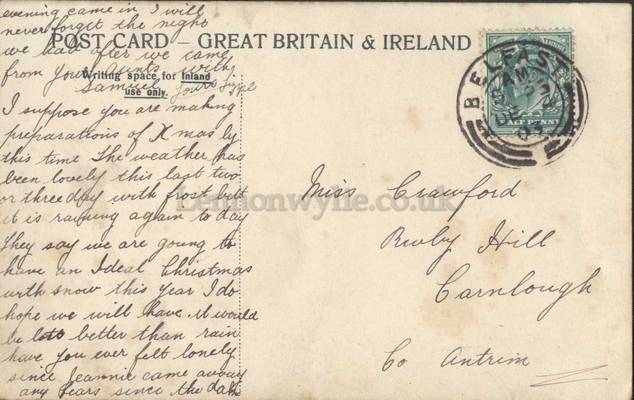 evening came in I will
never forget the night
we had after we came
from your Aunts with
Samuel yours
POST CARD – GREAT BRITAIN & IRELAND
Writing space for Inland
use only.
I suppose you are making
preparations of Xmas by
this time The weather has
been lovely this last two
or three day with frost but
it is raining again to day
They say we are going to
have an Ideal Christmas
with snow this year I do
hope we will have it would
be lots better than rain
have you ever felt lonely
since Jeannie came away
any fears since the dark
Miss Crawford
Ruby Hill
Carnlough
Co Antrim
BELFAST
AM
DE
03
HALF PENNY
Lennonwylie.co.uk